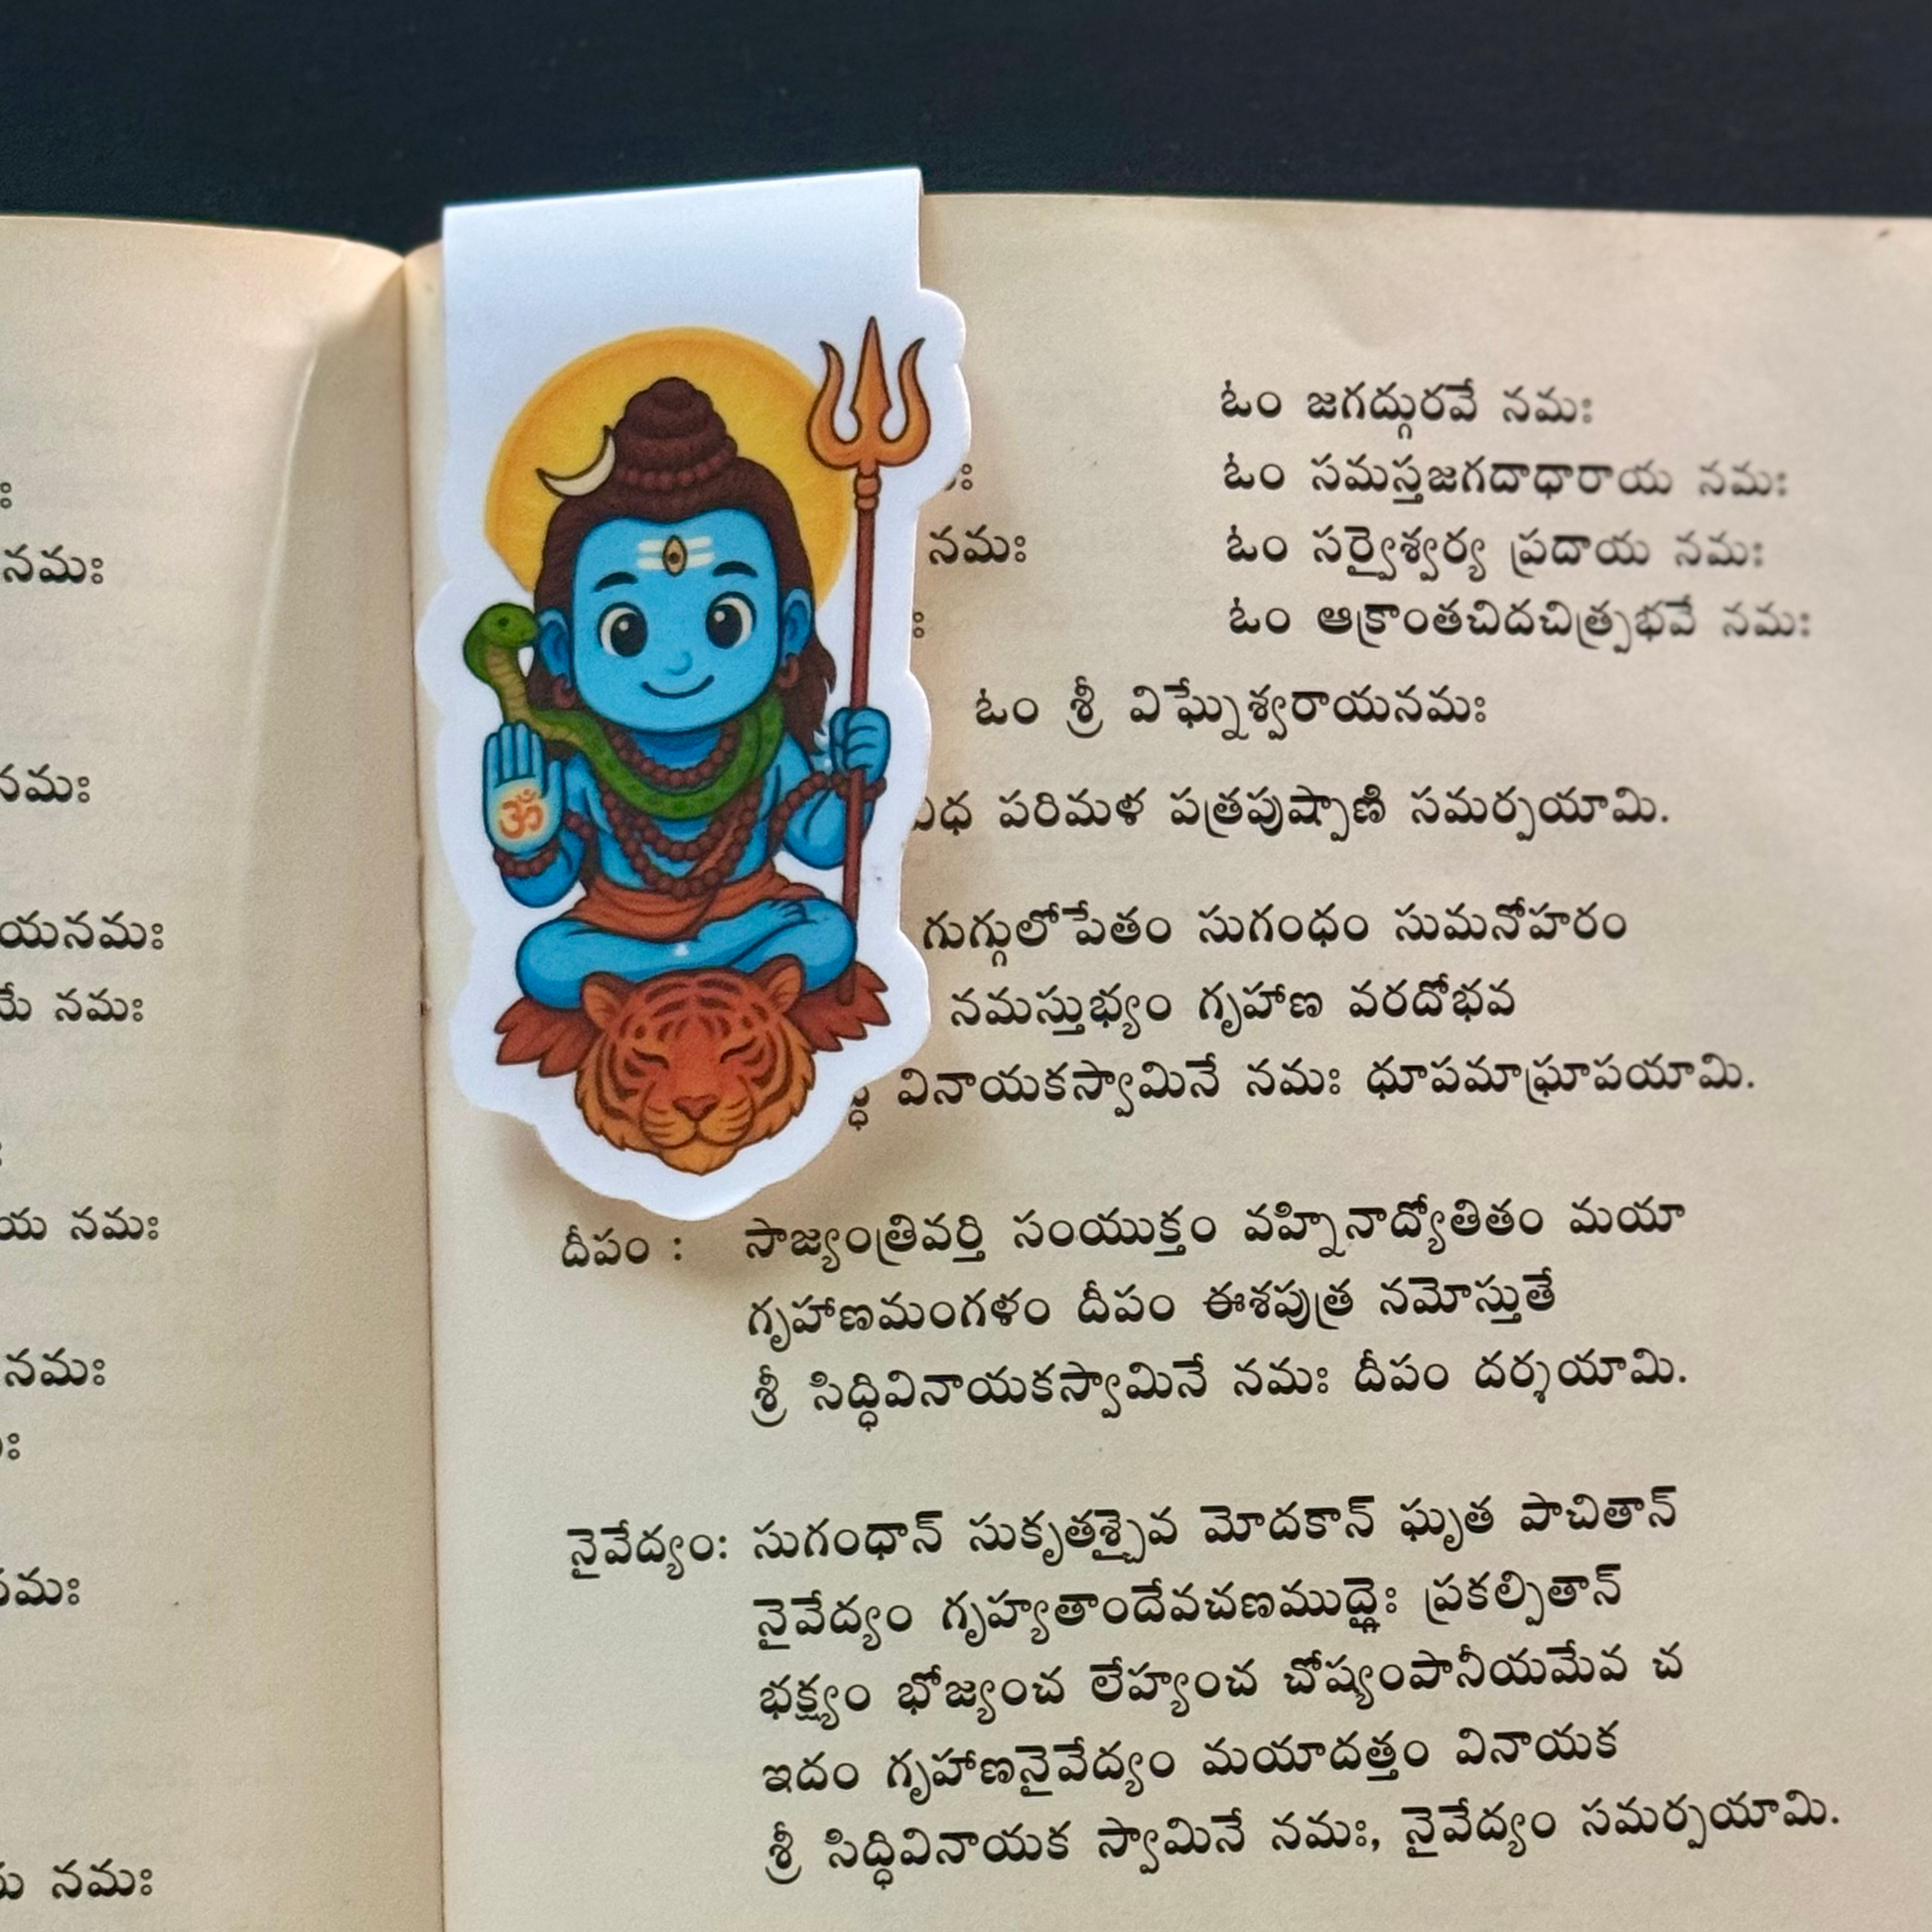 నమః
యనమః
నమః
నమః
నమః
నమః
నమః
ॐ
ఓం జగద్గురవే నమః
ఓం సమస్తజగదాధారాయ నమః
నమః ఓం సర్వైశ్వర్య ప్రదాయ నమః
ఓం ఆక్రాంతచిదచిత్ప్రభవే నమః
ఓం శ్రీ విఘ్నేశ్వరాయనమః
పరిమళ పత్రపుష్పాణి సమర్పయామి.
గుగ్గులోపేతం సుగంధం సుమనోహరం
నమస్తుభ్యం గృహాణ వరదోభవ
వినాయకస్వామినే నమః ధూపమాఘ్రాపయామి.
దీపం : సాజ్యంత్రివర్తి సంయుక్తం వహ్నినాద్యోతితం మయా
గృహాణమంగళం దీపం ఈశపుత్ర నమోస్తుతే
శ్రీ సిద్ధివినాయకస్వామినే నమః దీపం దర్శయామి.
నైవేద్యం: సుగంధాన్ సుకృతశ్చైవ మోదకాన్ ఘృత పాచితాన్
నైవేద్యం గృహ్యతాందేవచణముద్గైః ప్రకల్పితాన్
భక్ష్యం భోజ్యంచ లేహ్యంచ చోష్యంపానీయమేవ చ
ఇదం గృహాణనైవేద్యం మయాదత్తం వినాయక
శ్రీ సిద్ధివినాయక స్వామినే నమః, నైవేద్యం సమర్పయామి.